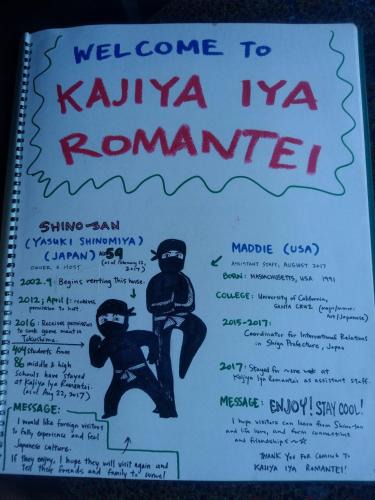 WELCOME TO
KAJIYA IYA
ROMANTEI
SHINO-SAN
(YASUKI SHINOMIYA)
(JAPAN) AGE 59
(as of February 12,
2017)
OWNER & HOST
2002.9: Begins renting this house.
2012; April 1: receives
permission to host.
2016: Receives permission
to cook game meat in
Tokushima.
404 students from
86 middle & high
schools have stayed
at Kajiya Iya Romantei.
(as of Aug 22, 2017)
MESSAGE:
I would like foreign visitors
to fully experience and feel
Japanese culture.
If they enjoy, I hope they will visit again and
tell their friends and family to come!
MADDIE (USA)
ASSISTANT STAFF, AUGUST 2017
BORN: MASSACHUSETTS, USA 1991
COLLEGE: University of California,
SANTA CRUZ
Art/Japanese)
2015-2017:
Coordinator for International Relations
in Shiga Prefecture, Japan
2017: Stayed for one week at
Kajiya Iya Romantei as assistant staff.
MESSAGE: ENJOY! STAY COOL!
I hope visitors can learn from Shino-san
and life here, and form connections
and friendships
THANK YOU FOR COMING TO
KAJIYA IYA ROMANTEI!